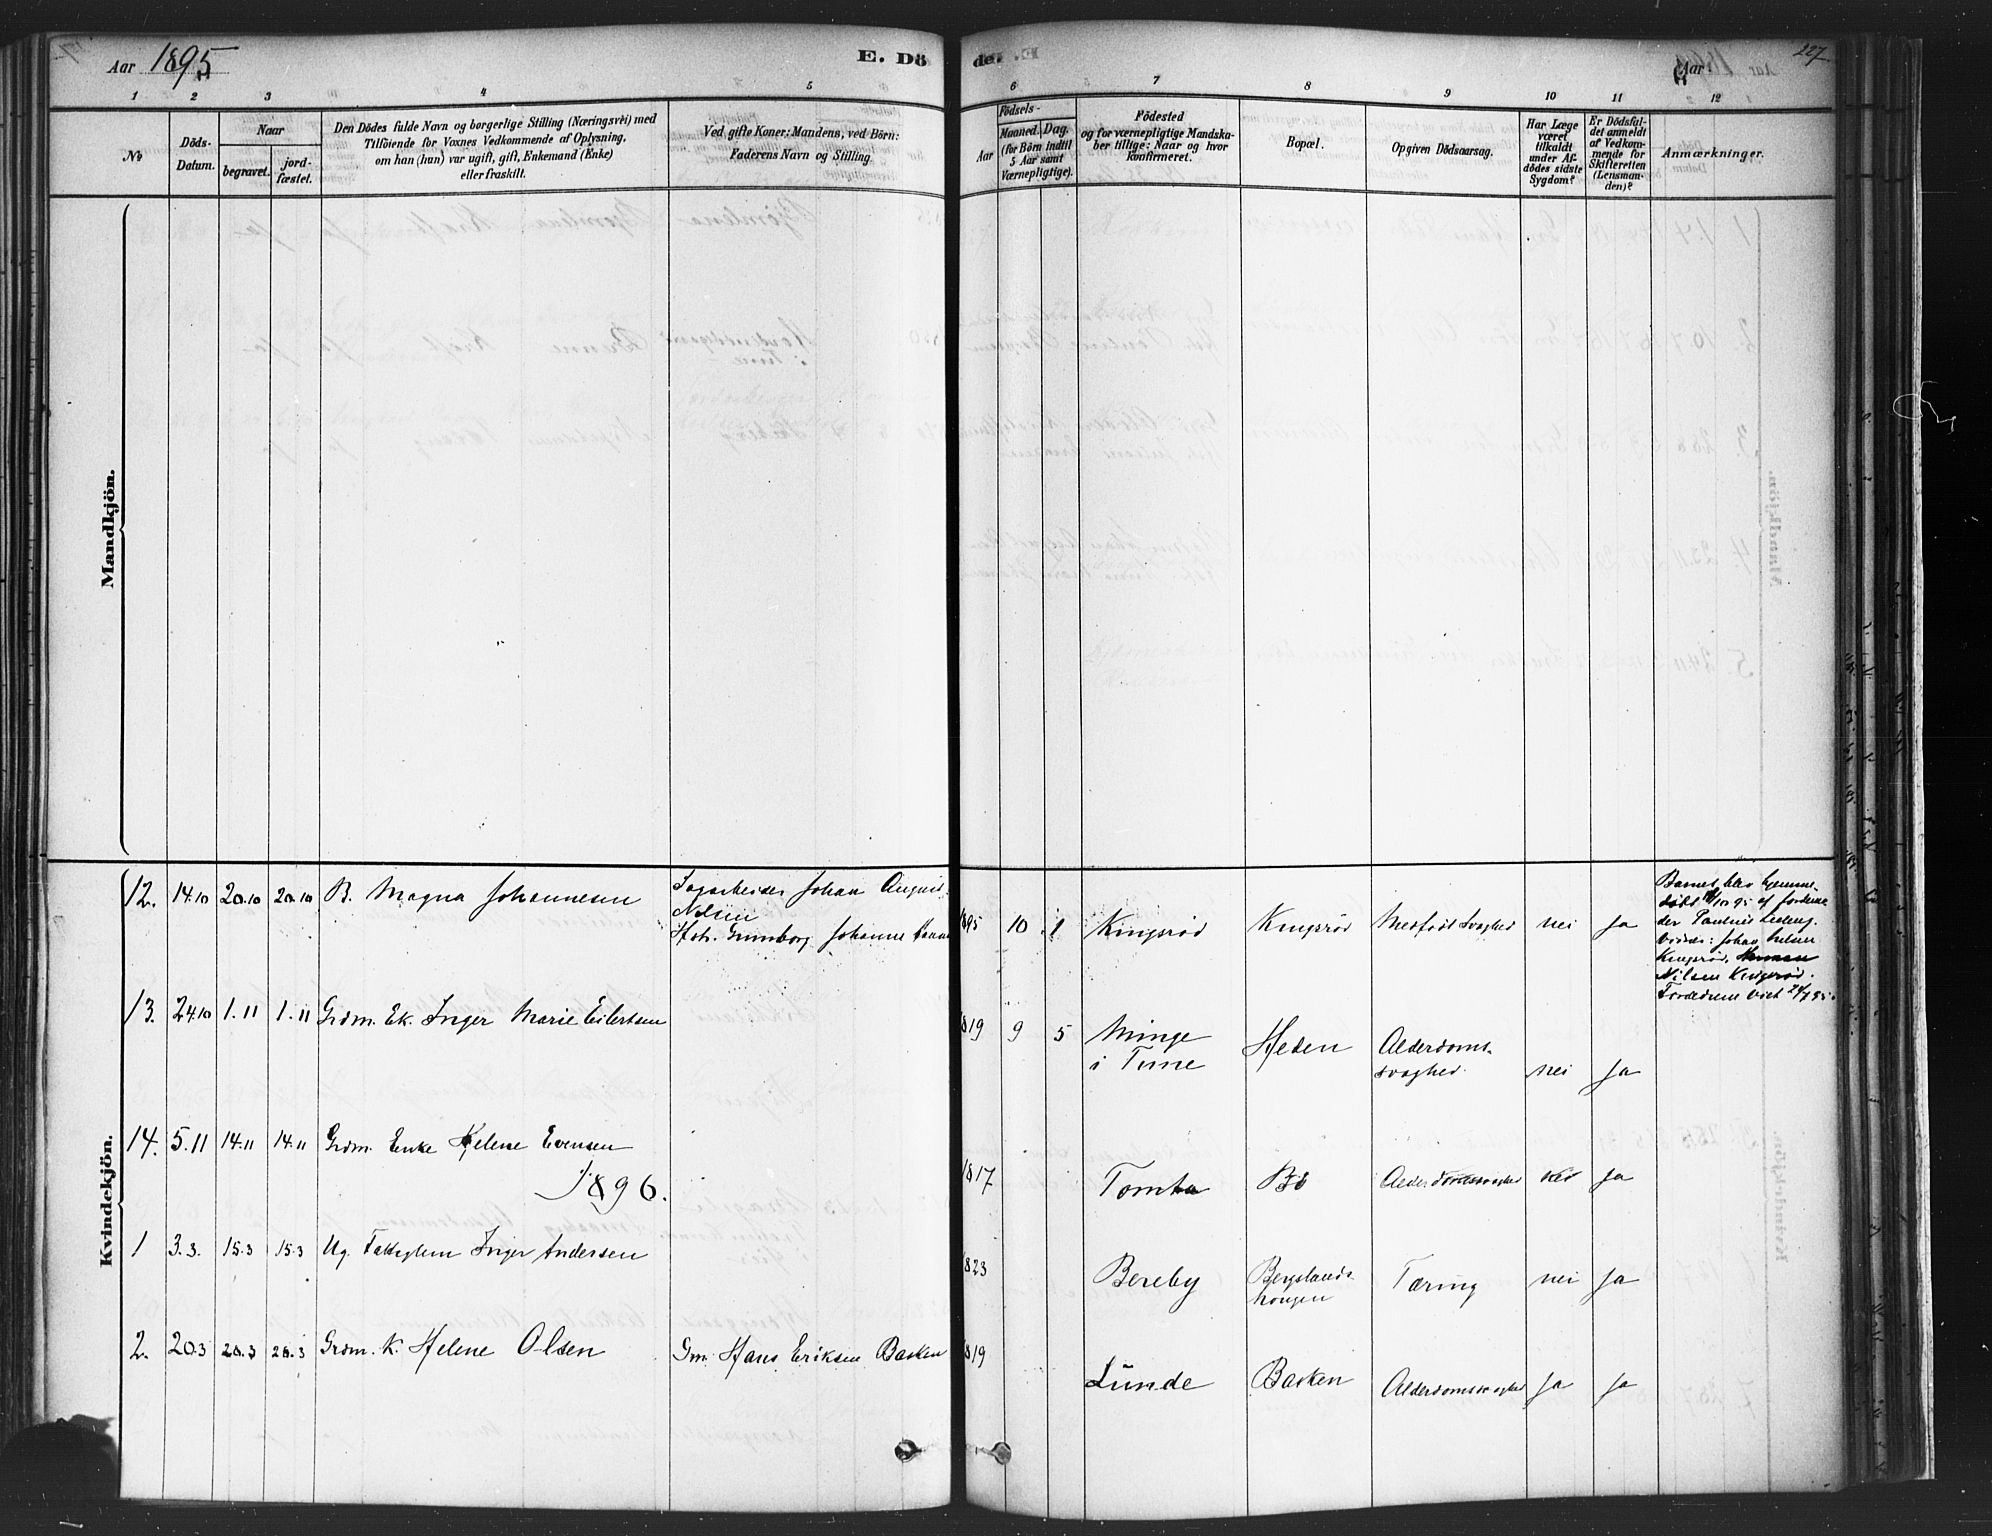 Aar 1895
E. Dö
de.
Aar
227
1 2 3 4 5 6 7 8 9 10 11 12
No
Döds-
Datum.
Naar
begravet.
jord-
fæstet.
Den Dödes fulde Navn og borgerlige Stilling (Næringsvei) med
Tilföiende for Voxnes Vedkommende af Oplysning,
om han (hun) var ugift, gift, Enkemand (Enke)
eller fraskilt.
Ved gifte Koner: Mandens, ved Börn:
Faderens Navn og Stilling.
Födsels-
Aar
Maaned.
Dag.
(for Börn indtil
5 Aar samt
Værnepligtige).
Födested
og for værnepligtige Mandska-
ber tillige: Naar og hvor
konfirmeret.
Bopæl.
Opgiven Dödsaarsag.
Har Læge
været
tilkaldt
under Af-
dödes sidste
Sygdom?
Er Dödsfal-
det anmeldt
af Vedkom-
mende for
Skifteretten
(Lensman-
den)?
Anmærkninger.
Mandkjön.
Kvindekjön.
12. 14.10 20.10 20.10 B. Magna Johannesen
Johan August
Nelsen
Gunborg Johanne
1895 10 1 Kingsrød Kingsrød Medfødt Svaghed nei Ja
Barnet blev hjemme-
døbt
der
Johan
Kingsrød.
Nilsen Kingsrød.
13. 24.10 1.11 1.11 Grdm. Ek. Inger Marie Eilertsen 1819 9 5 Minge
i Tune Heden Alderdoms-
svaghed. nei Ja
14. 5.11 14.11 14.11 Grdm. Enke Helene Evensen 1817 Tomta Bö Alderdomssvaghed nei Ja
1896.
1 3.3. 15.3 15.3 Ug. Fattiglem Inger Andersen 1823 Bereby Bergslands-
hougen Tæring nei Ja
2. 20.3 28.3 28.3 Grdm. K. Helene Olsen Gm. Hans Eriksen Basken 1819 Lunde Basken Alderdomssvaghed Ja Ja